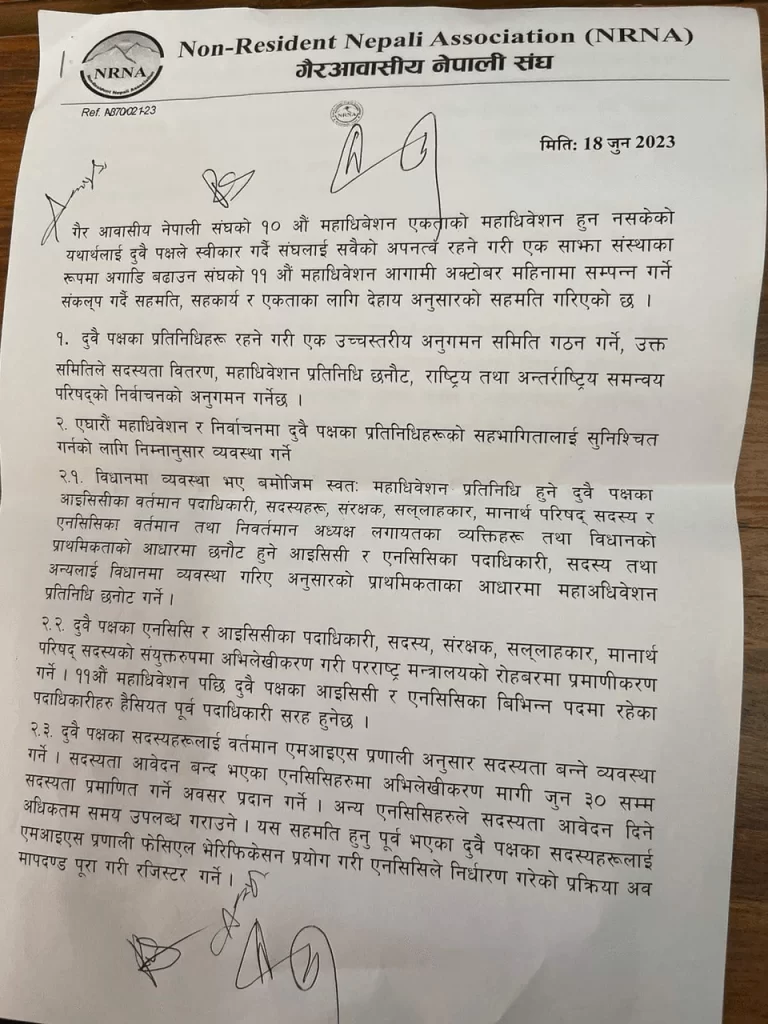 Non-Resident Nepali Association (NRNA)
गैरआवासीय नेपाली संघ
NRNA
Ref. AB70/021-23
NRNA
मिति: 18 जुन 2023
गैर आवासीय नेपाली संघको १० औं महाधिबेशन एकताको महाधिवेशन हुन नसकेको
यथार्थलाई दुवै पक्षले स्वीकार गर्दै संघलाई सवैको अपनत्व रहने गरी एक साझा संस्थाका
रूपमा अगाडि बढाउन संघको ११ औं महाधिवेशन आगामी अक्टोबर महिनामा सम्पन्न गर्ने
संकल्प गर्दै सहमति, सहकार्य र एकताका लागि देहाय अनुसारको सहमति गरिएको छ ।
१. दुवै पक्षका प्रतिनिधिहरू रहने गरी एक उच्चस्तरीय अनुगमन समिति गठन गर्ने, उक्त
समितिले सदस्यता वितरण, महाधिवेशन प्रतिनिधि छनौट, राष्ट्रिय तथा अन्तर्राष्ट्रिय समन्वय
परिषद्को निर्वाचनको अनुगमन गर्नेछ ।
२. एघारौं महाधिवेशन र निर्वाचनमा दुवै पक्षका प्रतिनिधिहरूको सहभागितालाई सुनिश्चित
गर्नको लागि निम्नानुसार व्यवस्था गर्ने
२.१. विधानमा व्यवस्था भए बमोजिम स्वतः महाधिवेशन प्रतिनिधि हुने दुवै पक्षका
आइसिसीका वर्तमान पदाधिकारी, सदस्यहरू, संरक्षक, सल्लाहकार, मानार्थ परिषद् सदस्य र
एनसिसिका वर्तमान तथा निवर्तमान अध्यक्ष लगायतका व्यक्तिहरू तथा विधानको
प्राथमिकताको आधारमा छनौट हुने आइसिसी र एनसिसिका पदाधिकारी, सदस्य तथा
अन्यलाई विधानमा व्यवस्था गरिए अनुसारको प्राथमिकताका आधारमा महाअधिवेशन
प्रतिनिधि छनोट गर्ने ।
२.२. दुवै पक्षका एनसिसि र आइसिसीका पदाधिकारी, सदस्य, संरक्षक, सल्लाहकार, मानार्थ
परिषद् सदस्यको संयुक्तरुपमा अभिलेखीकरण गरी परराष्ट्र मन्त्रालयको रोहबरमा प्रमाणीकरण
गर्ने । ११औं महाधिवेशन पछि दुवै पक्षका आइसिसी र एनसिसिका बिभिन्न पदमा रहेका
पदाधिकारीहरु हैसियत पूर्व पदाधिकारी सरह हुनेछ ।
२.३. दुवै पक्षका सदस्यहरूलाई वर्तमान एमआइएस प्रणाली अनुसार सदस्यता बन्ने व्यवस्था
गर्ने । सदस्यता आवेदन बन्द भएका एनसिसिहरुमा अभिलेखीकरण मागी जुन ३० सम्म
सदस्यता प्रमाणित गर्ने अवसर प्रदान गर्ने । अन्य एनसिसिहरुले सदस्यता आवेदन दिने
अधिकतम समय उपलब्ध गराउने । यस सहमति हुनु पूर्व भएका दुवै पक्षका सदस्यहरूलाई
एमआइएस प्रणाली फेसिएल भेरिफिकेसन प्रयोग गरी एनसिसिले निर्धारण गरेको प्रक्रिया अव
मापदण्ड पूरा गरी रजिस्टर गर्ने ।